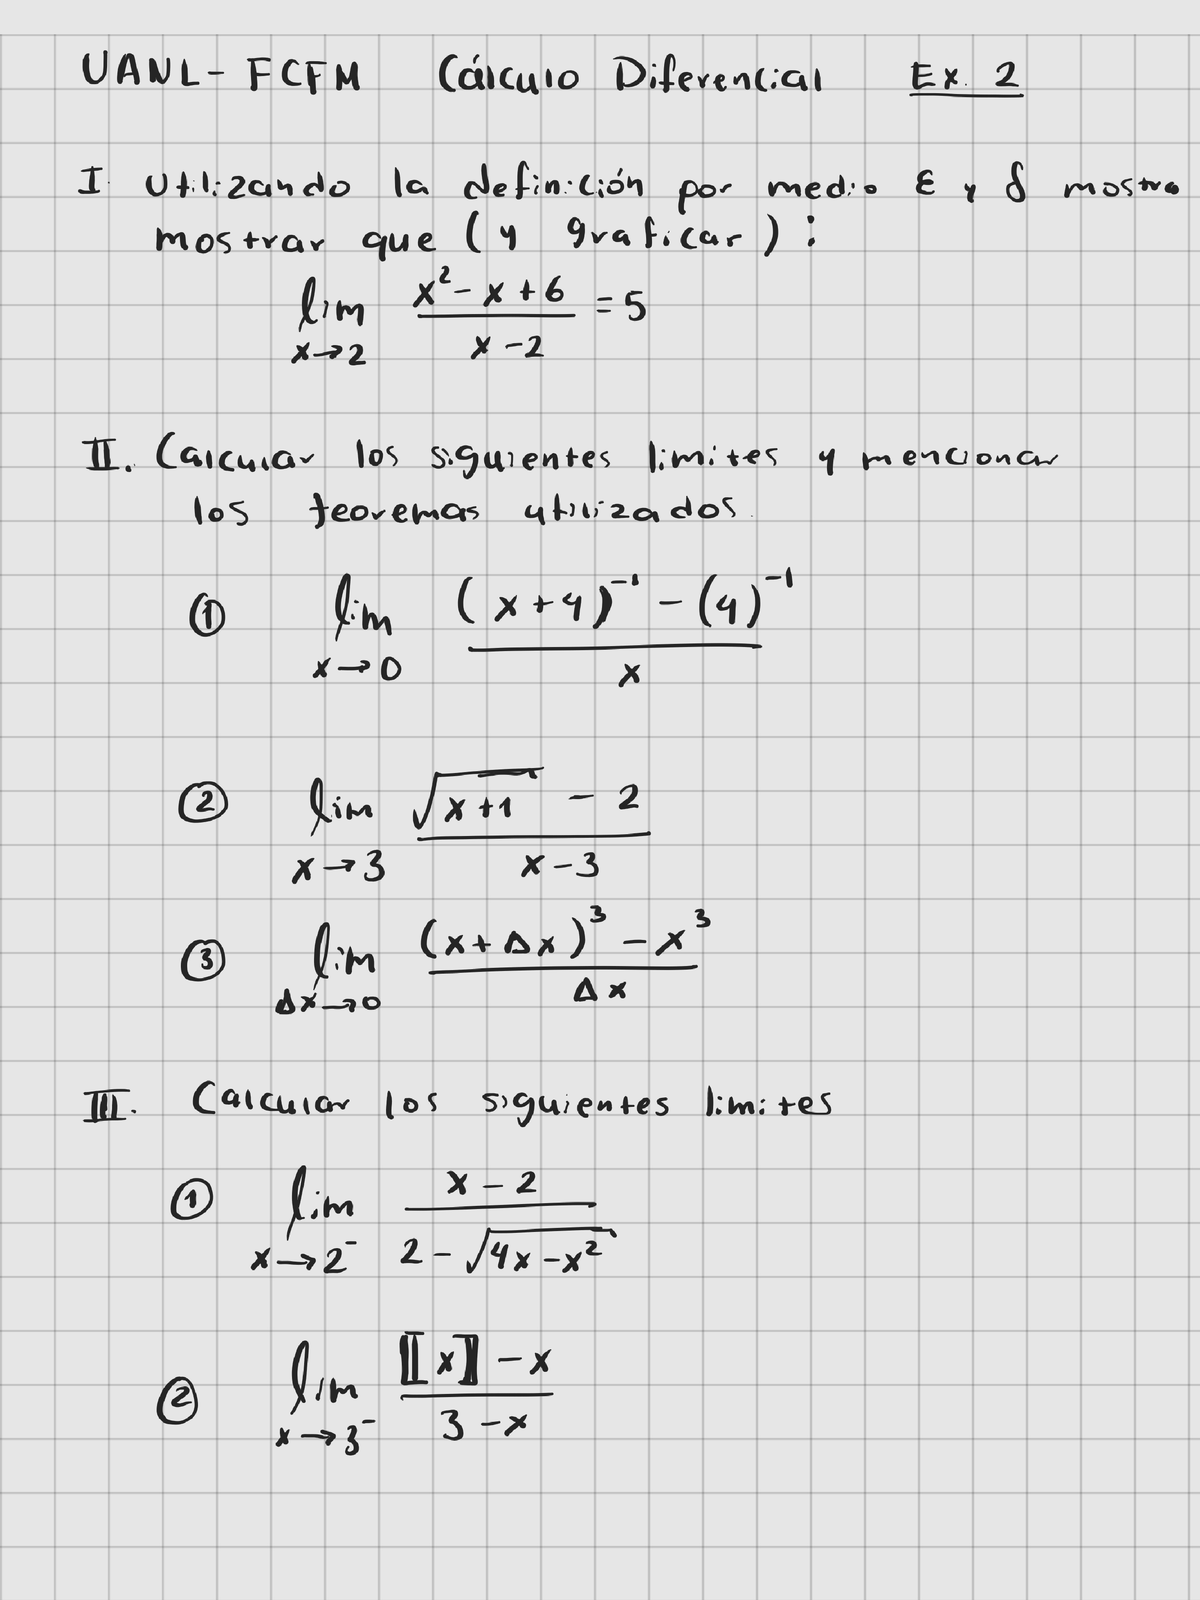 UANL- FCFM Cálculo Diferencial Ex. 2
I. Utilizando la definición por medio ε y δ mostra
mostrar que (y graficar):
lim x→2 (x² - x + 6)/(x - 2) = 5
II. Calcular los siguientes limites y mencionar
los teoremas utilizados.
① lim x→0 ((x+4)⁻¹ - (4)⁻¹)/x
② lim x→3 (√(x+1) - 2)/(x - 3)
③ lim Δx→0 ((x+Δx)³ - x³)/Δx
III. Calcular los siguientes limites
① lim x→2⁻ (x - 2)/(2 - √(4x - x²))
② lim x→3⁻ (⟦x⟧ - x)/(3 - x)